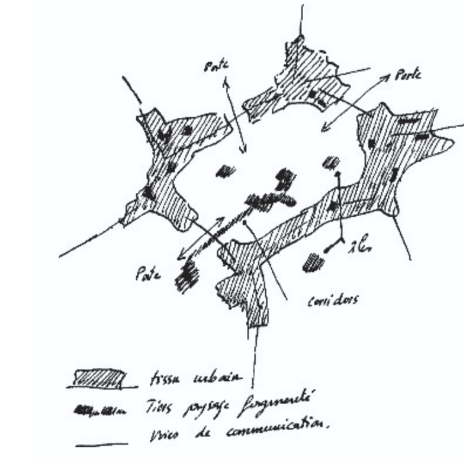 Porte
Porte
îles
Porte
corridors
tissu urbain
Tiers paysage fragmenté
Voies de communication.